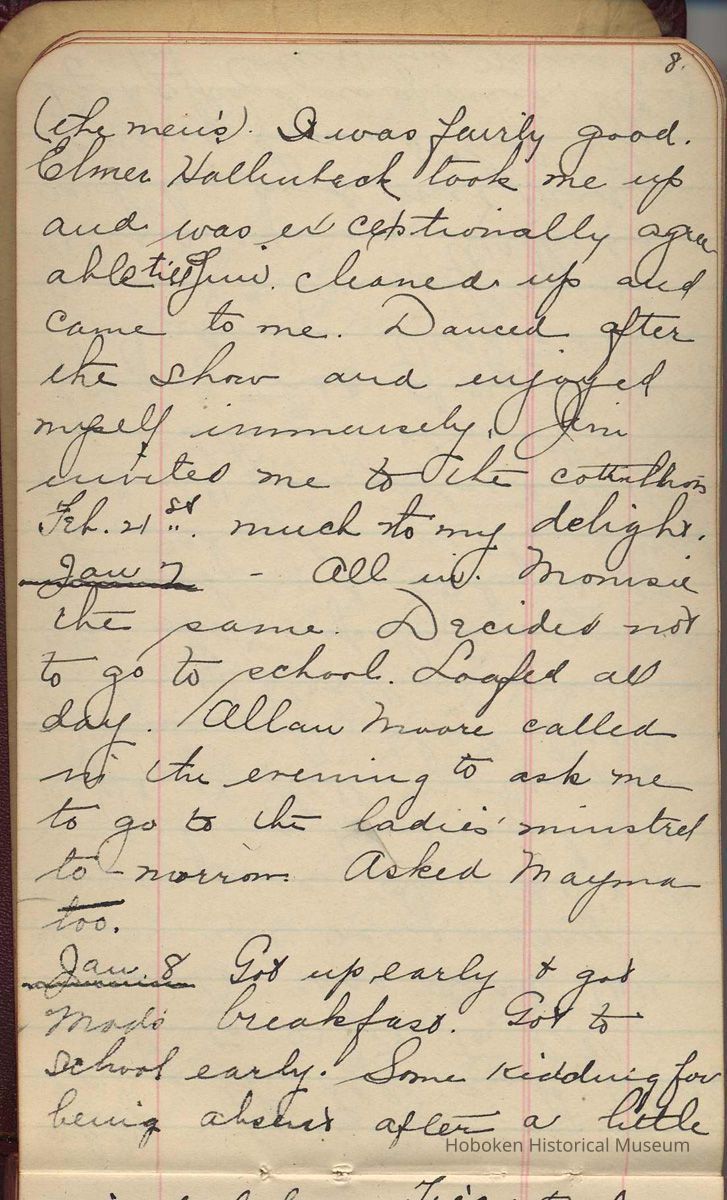 8.
(the men's). It was fairly good.
Elmer Hallenbeck took me up
and was exceptionally agree
able till Jim cleaned up and
came to me. Danced after
the show and enjoyed
myself immensely. Jim
invited me to the cotillion
Feb. 21st. much to my delight.
Jan 7 - All in. Momsie
the same. Decided not
to go to school. Loafed all
day. Allan Moore called
in the evening to ask me
to go to the ladies' minstrel
to-morrow. Asked Mayma
too.
Jan. 8 Got up early & got
Mod's breakfast. Got to
school early. Some kidding for
being absent after a little
Hoboken Historical Museum